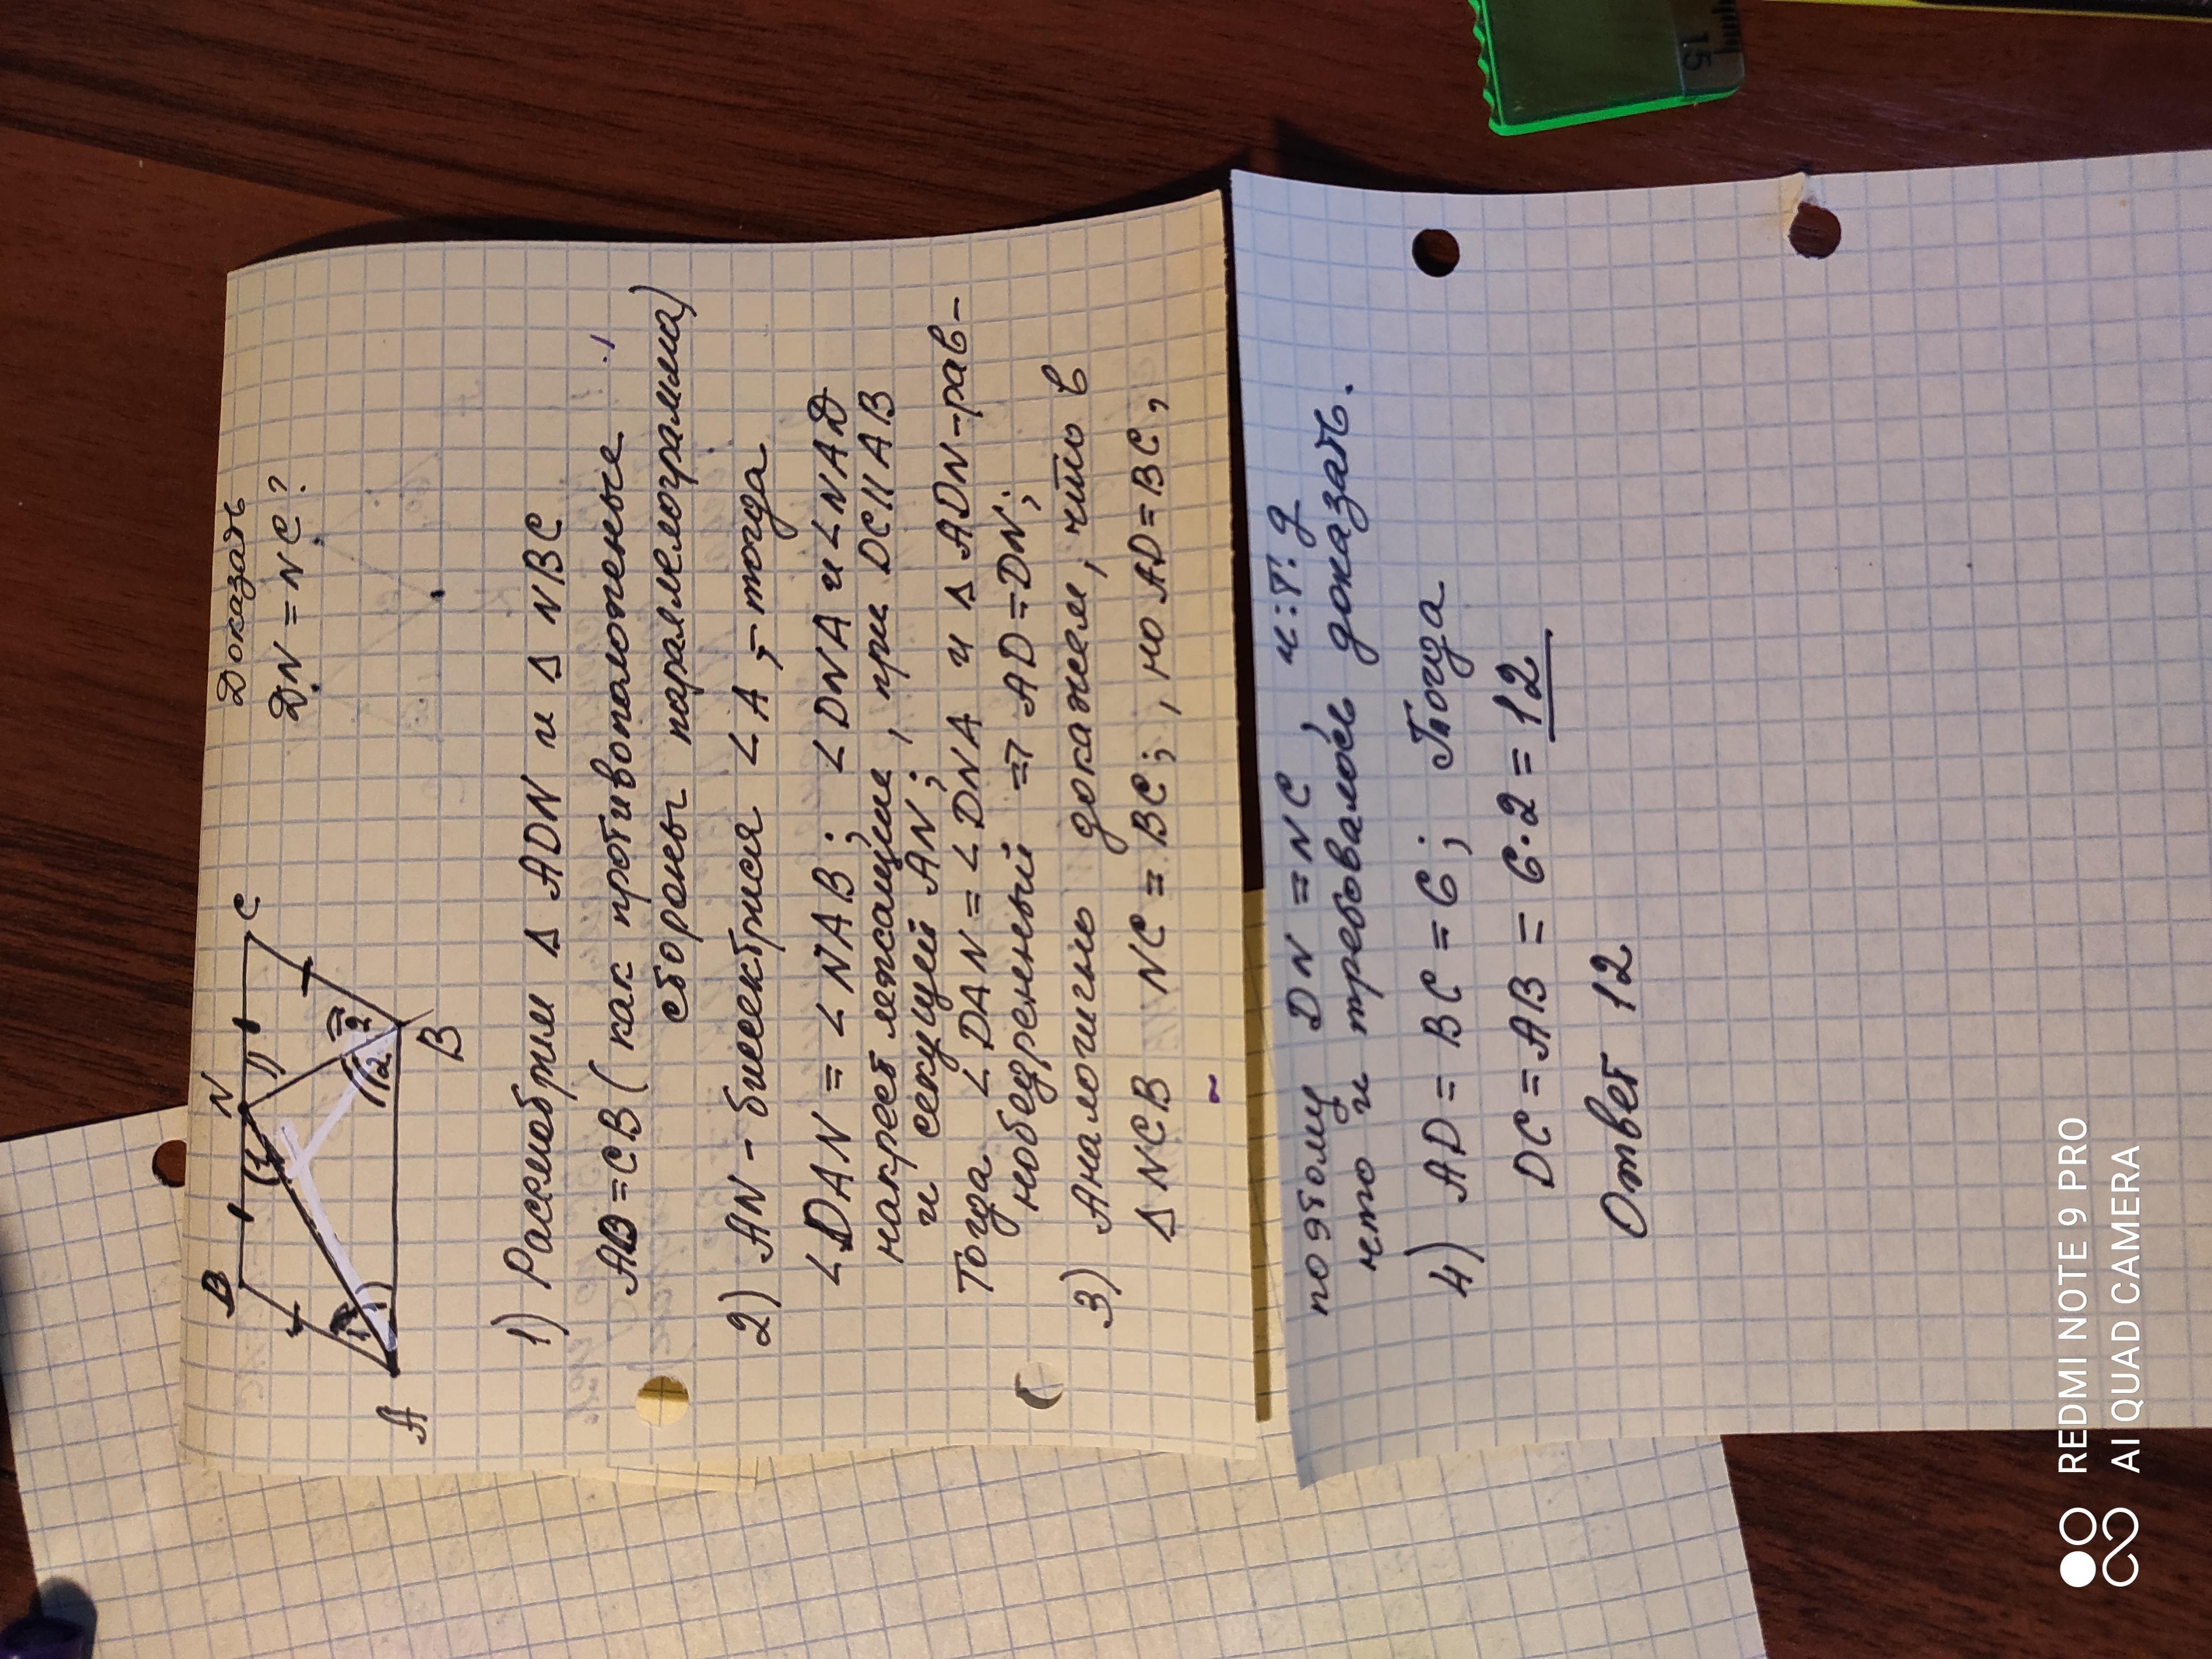 Доказать
DN = NC?
D
N
C
A
B
1
1
2
2
1) Рассмотрим Δ ADN и Δ NBC
AD = CB ( как противоположные
стороны параллелограмма)
2) AN - биссектриса < A, - тогда
< DAN = < NAB; < DNA и < NAD
накрест лежащие, при DC || AB
и секущей AN;
Тогда < DAN = < DNA и Δ ADN - рав-
нобедренный => AD = DN;
3) Аналогично докажем, что в
Δ NCB NC = BC; , но AD = BC,
поэтому DN = NC, и.т.д
что и требовалось доказать.
4) AD = BC = 6; Тогда
DC = AB = 6·2 = 12
Ответ 12
15
REDMI NOTE 9 PRO
AI QUAD CAMERA